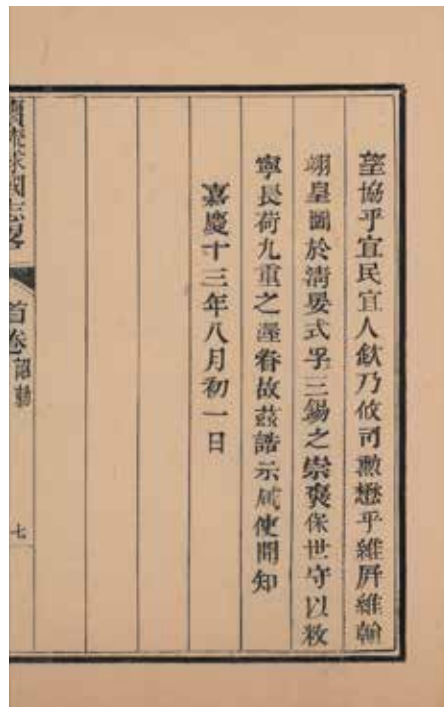 望協乎宜民宜人欽乃攸司懋懋乎維屏維翰
翊皇圖於清晏式孚三錫之崇褒保世守以敉
寧長荷九重之渥眷故茲誥示咸使聞知
嘉慶十三年八月初一日
續琉球國志畧
首卷 詔勅
七